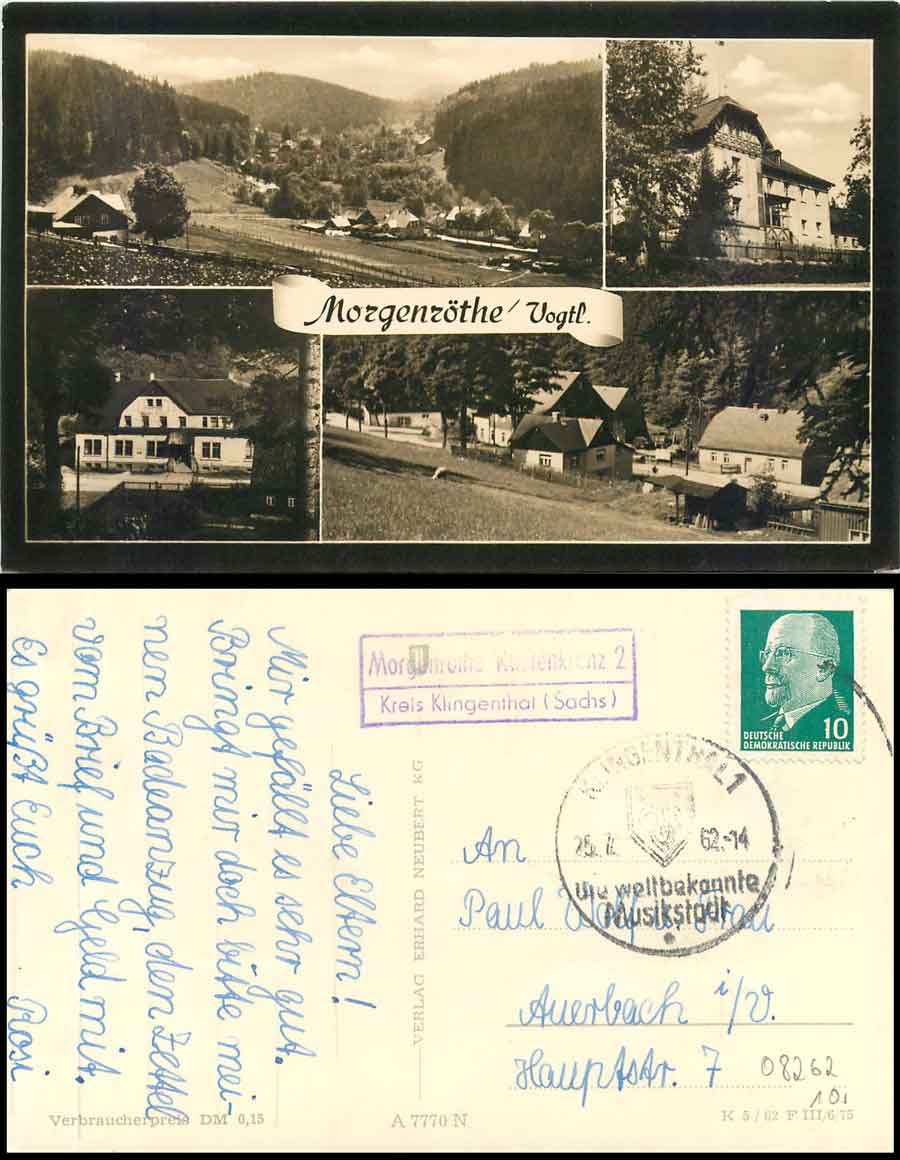 Morgenröthe/Vogtl.
Kreis Klingenthal (Sachs)
DEUTSCHE
DEMOKRATISCHE REPUBLIK
10
KLINGENTHAL 1
62.-14
Die weltbekannte
Musikstadt
Liebe Eltern!
Mir gefällt es sehr gut.
Bringt mir doch bitte mei-
nen Badeanzug, den Zettel
vom Brief und Geld mit.
Es grüßt Euch Rosi
VERLAG ERHARD NEUBERT KG
An
Paul Wolf u. Frau
Auerbach i/V.
Hauptstr. 7
08262
Verbraucherpreis DM 0,15
A 7770 N
K 5/62 F III/6/75